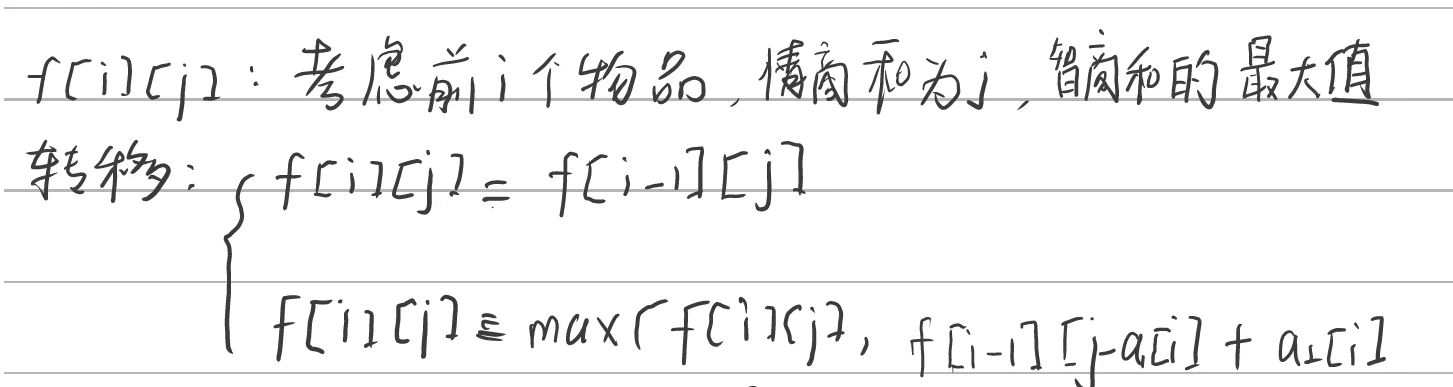 f[i][j]：考虑前i个物品，情商和为j，智商和的最大值
转移：{ f[i][j] = f[i-1][j]
f[i][j] = max(f[i][j], f[i-1][j-a[i] + a₂[i]